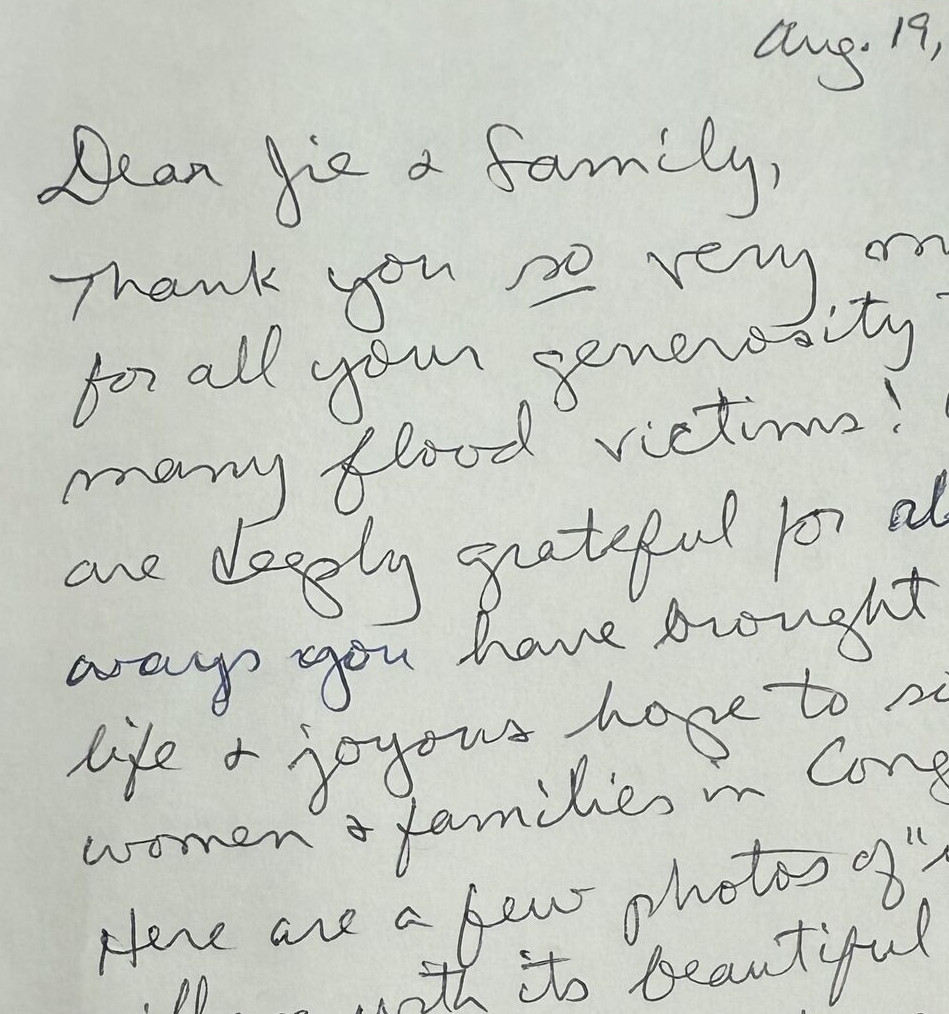 Aug. 19,
Dear Jie & family,
Thank you so very
for all your generosity
many flood victims!
are deeply grateful for
ways you have brought
life & joyous hope to
women & families in
Here are a few photos of "
with its beautiful